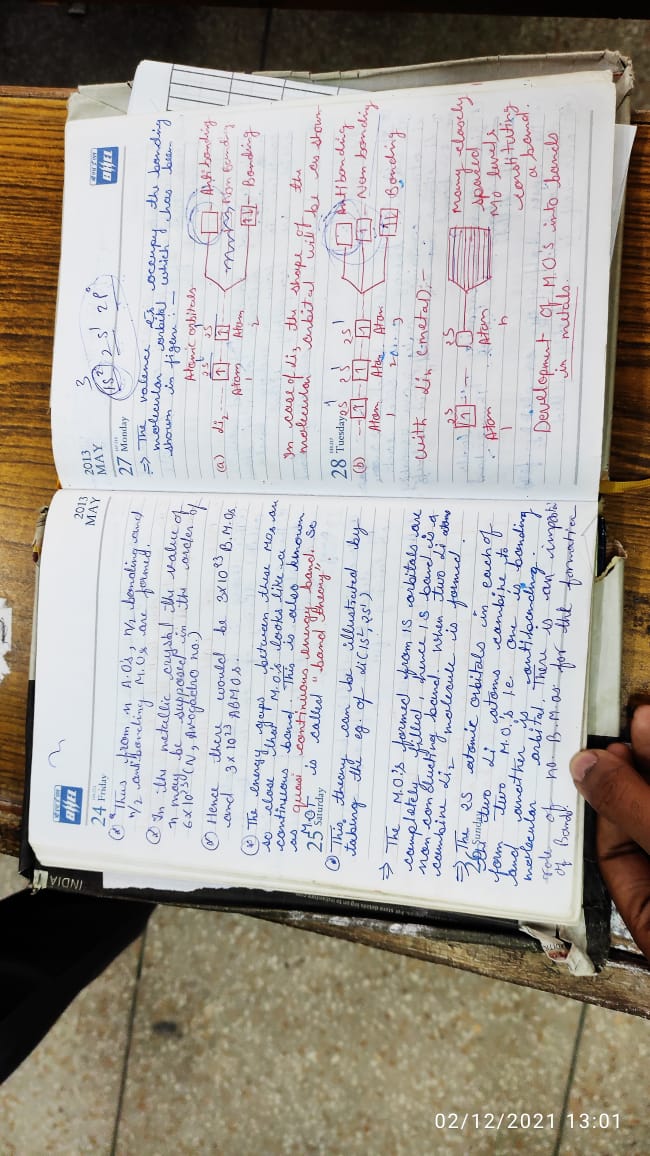 BHEL
24 Friday
Thus from n A.O's, n/2 bonding and
n/2 antibonding M.O's are formed.
In the metallic crystal the value of
n may be supposed in the order of
6x10²³ (N, Avogadro no.)
Hence there would be 3x10²³ B.M.Os.
and 3x10²³ ABMOs.
The energy gaps between these MOs are
so close that M.O.'s looks like a
continuous band. This is also known
as quasi continuous energy band. So
M.O.T is called "band theory".
25 Saturday
This theory can be illustrated by
taking the eg. of Li (1s², 2s¹)
⇒ The M.O.'s formed from 1S orbitals are
completely filled, hence 1S band is a
non conducting band when two Li atoms
combine Li₂ molecule is formed.
26 Sunday
⇒ The 2S atomic orbitals in each of
two Li atoms combine to
form two M.O.'s i.e one is bonding
and another is antibonding
molecular orbital. There is an
role of no B.M.Os for the formation
of Band.
2013
MAY
2013
MAY
27 Monday
3
1s² 2s¹ 2p⁰
BHEL
⇒ The valence occupy the bonding
molecular orbital which has been
shown in figure :-
Atomic orbitals
(a) Li₂
2s 2s
1 1
Atom Atom
1 2
Antibonding
Non Bonding
Bonding
In case of Li₃ the shape of the
molecular orbital will be as shown
28 Tuesday
(b)
2s¹ 2s¹ 2s¹
1 1 1
Atom Atom Atom
1 2 3
Antibonding
Non bonding
Bonding
With Lin (metal) :-
2S 2S
1
Atom Atom
1 n
many closely
spaced
MO levels
constituting
a band.
Development of M.O.'s into bands
in metals.
INDIA
02/12/2021 13:01